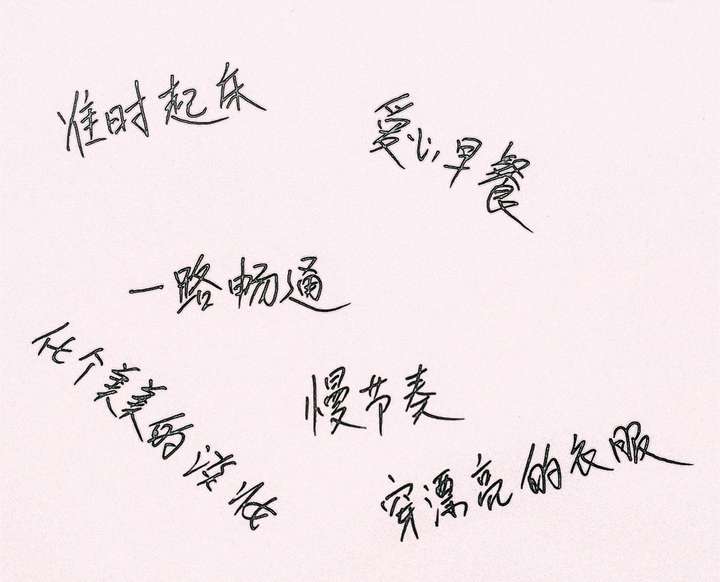 准时起床
爱心早餐
一路畅通
化个美美的淡妆
慢节奏
穿漂亮的衣服